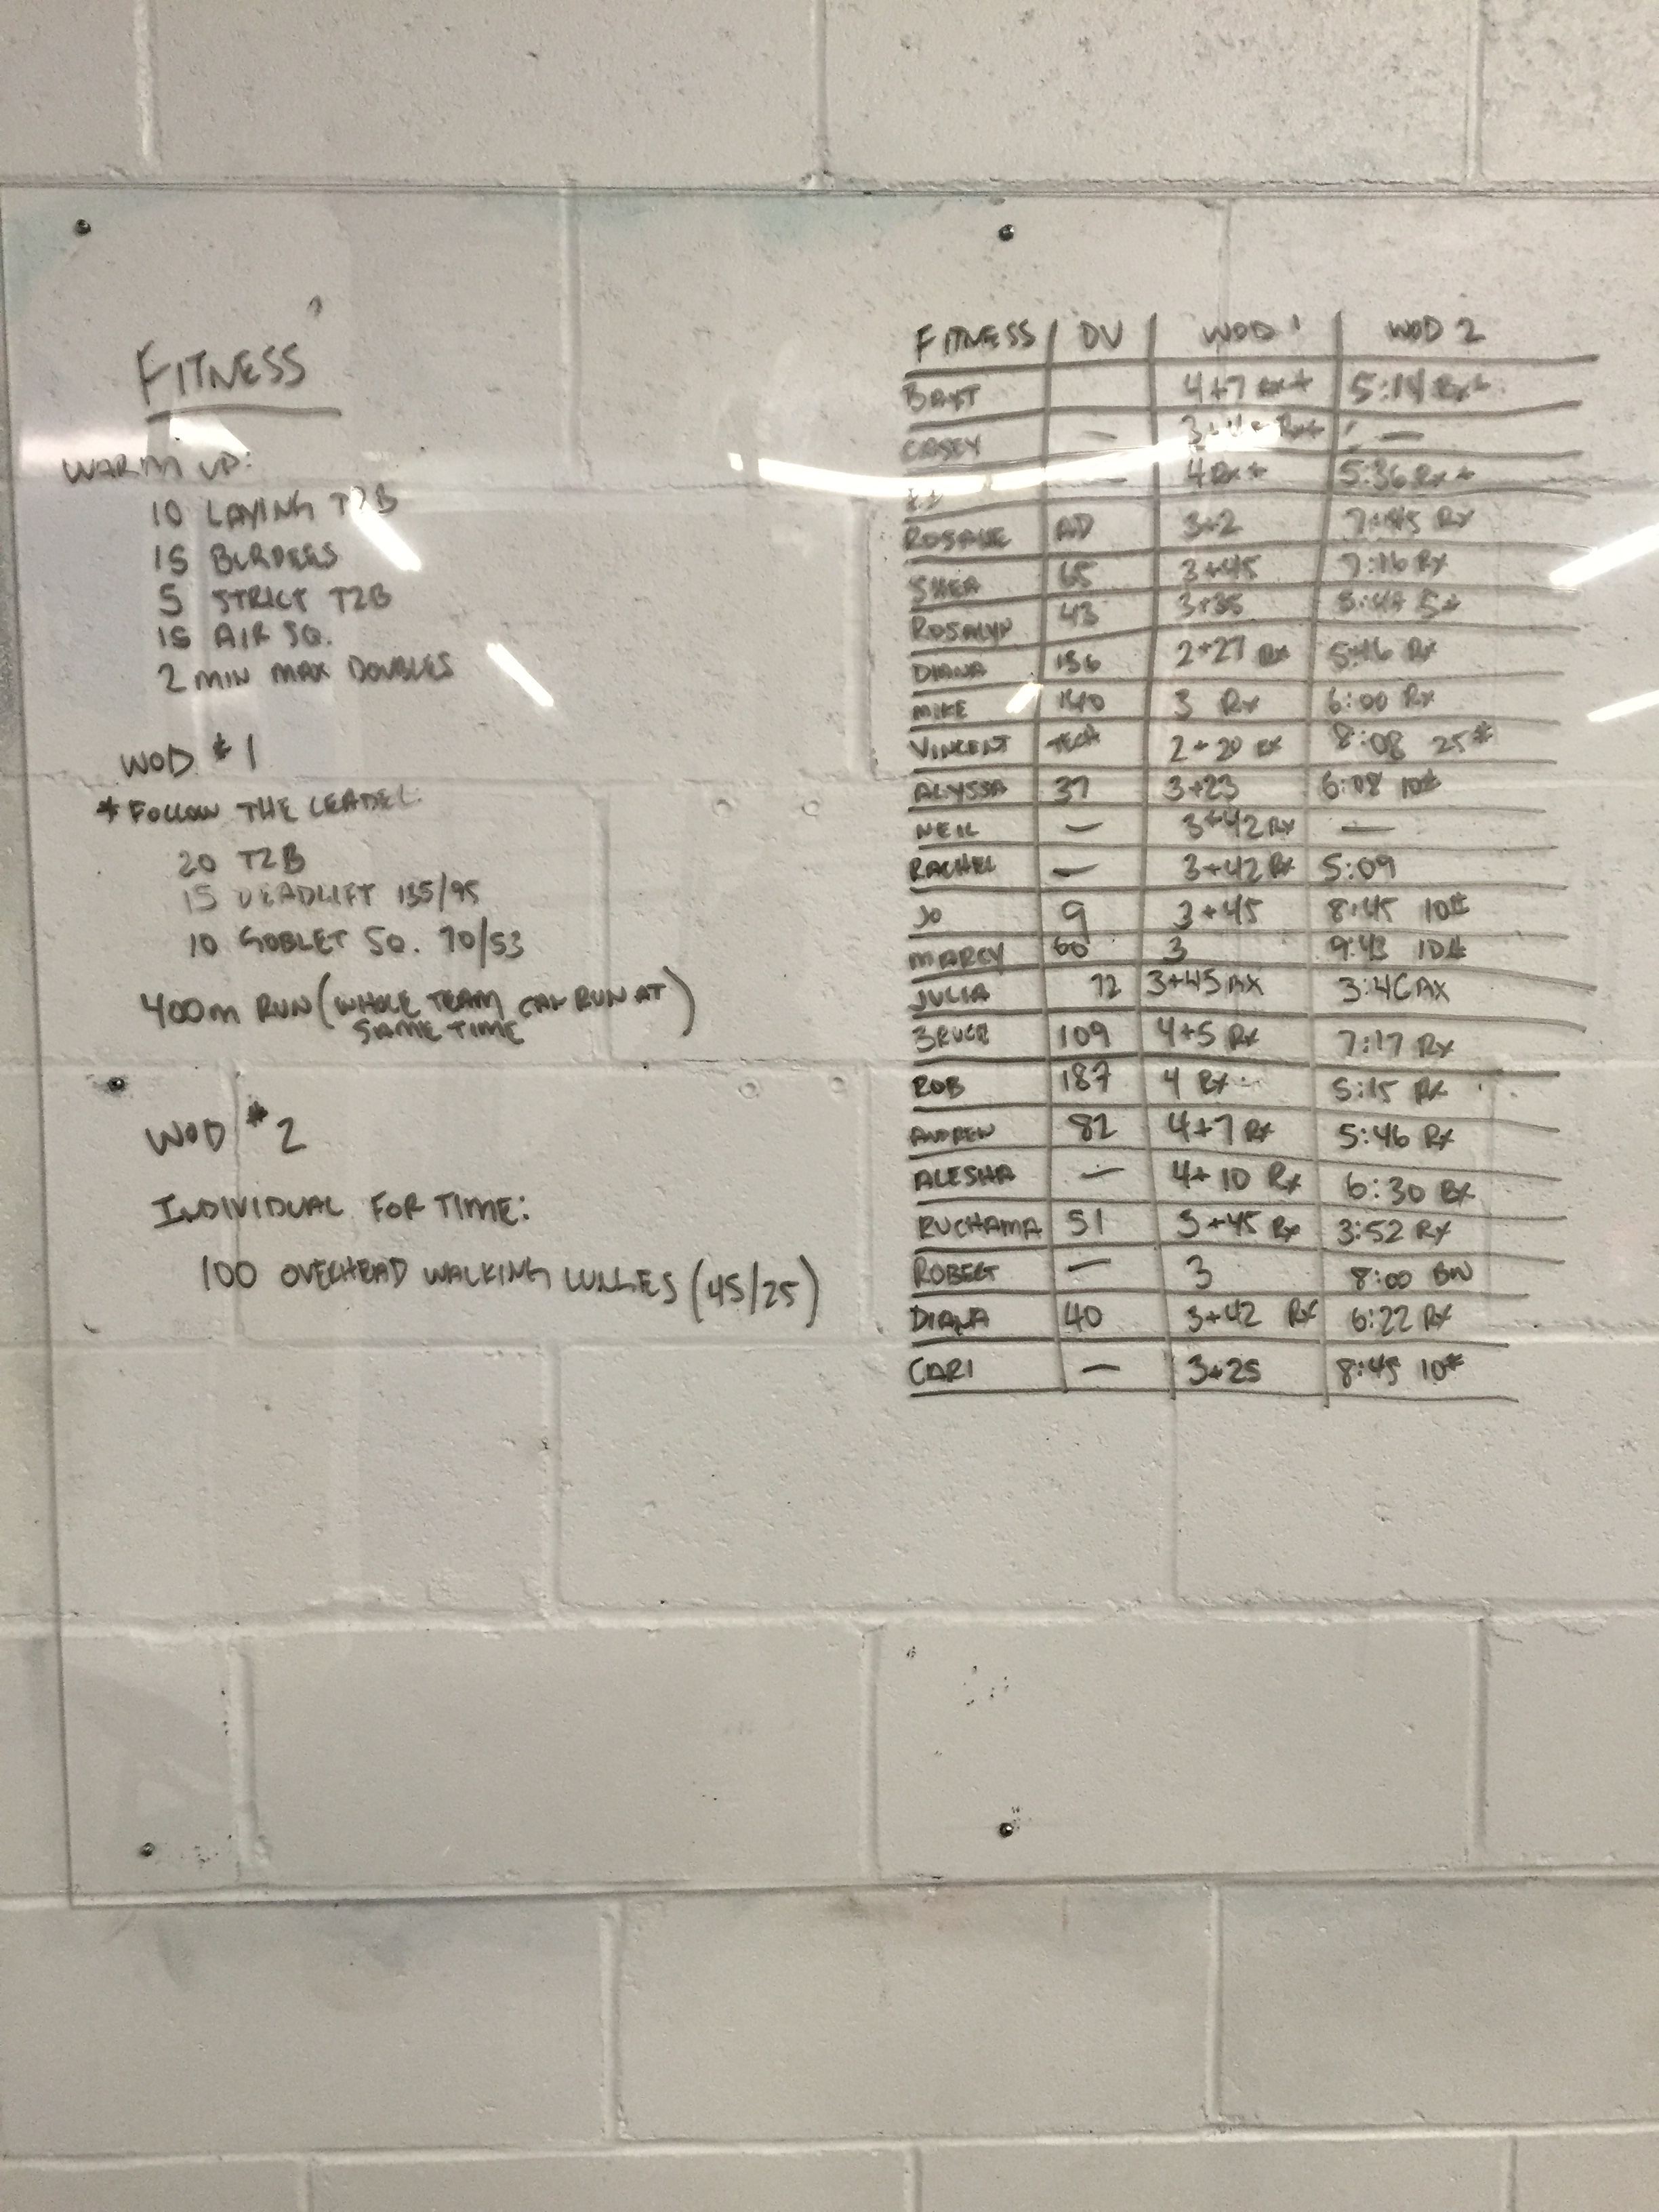 FITNESS
WARM UP:
10 LAYING T2B
15 BURPEES
5 STRICT T2B
15 AIR SQ.
2 MIN MAX DOUBLES
WOD #1
* FOLLOW THE LEADER
20 T2B
15 DEADLIFT 135/95
10 GOBLET SQ. 70/53
400m RUN (WHOLE TEAM CAN RUN AT
SAME TIME)
WOD #2
INDIVIDUAL FOR TIME:
100 OVERHEAD WALKING LUNGES (45/25)
FITNESS DU WOD 1 WOD 2
BART 4+7 Rx+ 5:14 Rx+
CASEY — Rx+ —
— 4 Rx+ 5:36 Rx+
ROSALIE 3+2 7:45 Rx
SHEA 65 3+45 7:16 Rx
ROSALYN 43 3+35
DIANA 156 2+27 Rx 5:46 Rx
MIKE 140 3 Rx 6:00 Rx
VINCENT TECH 2+20 Rx 8:08 25#
ALYSSA 37 3+23 6:08 10#
NEIL — 3+42 Rx —
RACHEL — 3+42 Rx 5:09
JO 9 3+45 8:45 10#
MARCY 60 3 9:43 10#
JULIA 72 3+45 RX 3:46 RX
BRUCE 109 4+5 Rx 7:17 Rx
ROB 187 4 Rx 5:15 Rx
ANDREW 82 4+7 Rx 5:46 Rx
ALESHA — 4+10 Rx 6:30 Rx
RUCHAMA 51 3+45 Rx 3:52 Rx
ROBERT — 3 8:00 BW
DIANA 40 3+42 Rx 6:22 Rx
CARI — 3+25 8:45 10#